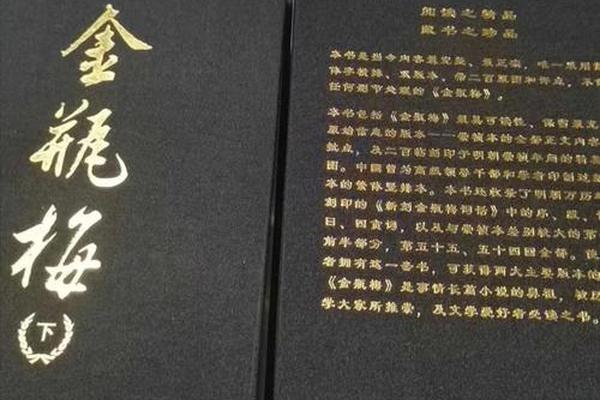 金
瓶
梅
下
阅读之精品
藏书之珍品
本书是当今内容最完整、最正宗，唯一采用
体字校排、双版本，带二百原图和评点，本
任何删节处理的《金瓶梅》。
本书包括《金瓶梅》最具可读性、保留最
原始信息的版本——崇祯本的全部正文内容
批点，及二百帧刻印于明朝崇祯年间的精美
图。中国曾为高级领导干部和学者印制过
本的繁体竖排本。本书还收录了明朝万历
刻印的《新刻金瓶梅词话》中的序、跋、
目、四贪词，以及与崇祯本差别较大的第
前半部分，第五十五、五十四回全部。使
者拥有这一套书，可获得两大主要版本的
《金瓶梅》是事情长篇小说的鼻祖，被历
学大家所推崇，及文学爱好者必读之书。